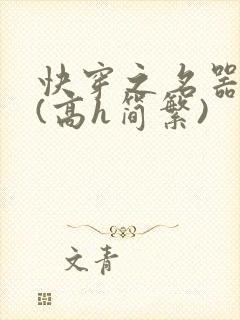 快穿之名器
(高h简繁)
文青